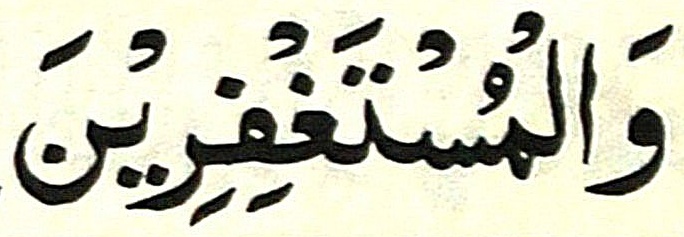 وَالْمُسْتَغْفِرِيْنَ